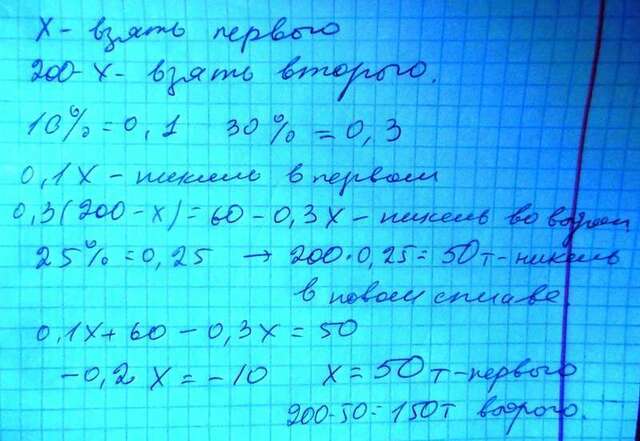 х - взять первого
200-х - взять второго.
10% = 0,1 30% = 0,3
0,1х - никель в первом
0,3(200-х)=60-0,3х - никель во втором
25% = 0,25 → 200·0,25=50т-никель
в новом сплаве.
0,1х+60-0,3х=50
-0,2х=-10 х=50т-первого
200-50=150т второго.